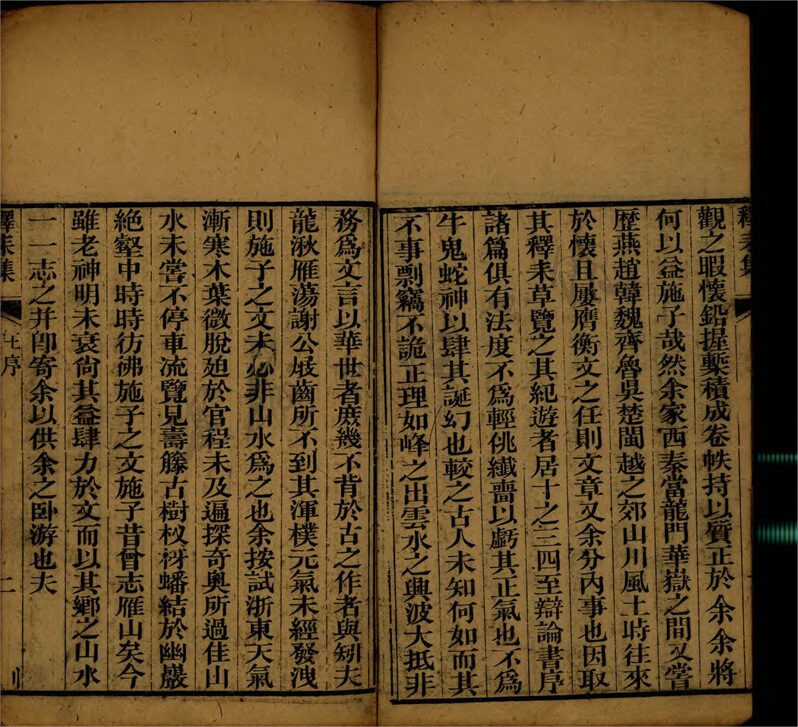 觀之暇懷鉛握槧積成卷帙持以質正於余余將
何以益施子哉然余家西秦當龍門華嶽之間又嘗
歷燕趙韓魏齊魯吳楚閩越之郊山川風土時往來
於懷且屢膺衡文之任則文章又余分內事也因取
其釋耒草覽之其紀遊者居十之三四至辯論書序
諸篇俱有法度不為輕佻纖嗇以虧其正氣也不為
牛鬼蛇神以肆其誕幻也較之古人未知何如而其
不事剽竊不詭正理如峰之出雲水之與波大抵非
務為文言以華世者庶幾不背於古之作者與矧夫
龍湫雁蕩謝公屐齒所不到其渾樸元氣未經發洩
則施子之文未必非山水為之也余按試浙東天氣
漸寒木葉微脫廹於官程未及遍探奇奧所過佳山
水未嘗不停車流覽見壽籐古樹杈枒蟠結於幽巖
絶壑中時時彷彿施子之文施子昔曾志雁山矣今
雖老神明未衰尚其益肆力於文而以其鄉之山水
一一志之并卽寄余以供余之臥游也夫
釋耒集
序
二